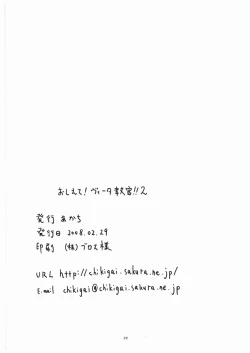 おしえて!ヴィータ教官!!2
発行 あかち
発行日 2008.02.29
印刷 (株)プロス様
URL http://chikigai.sakura.ne.jp/
E.mail chikigai@chikigai.sakura.ne.jp